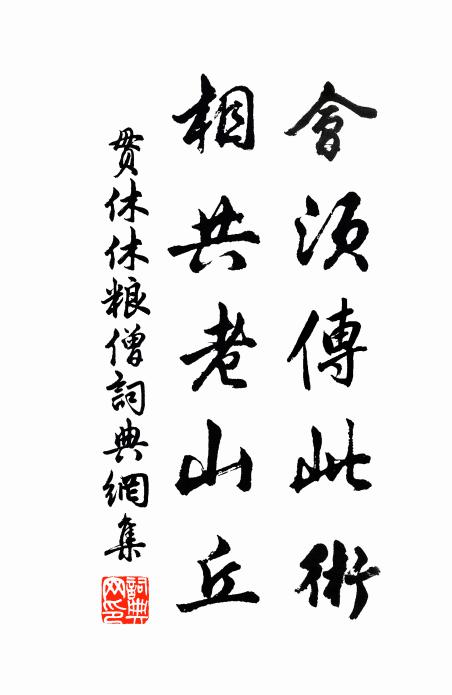 會須傳此術
相共老山丘
贯休休粮僧詞典網集
詞典
网印